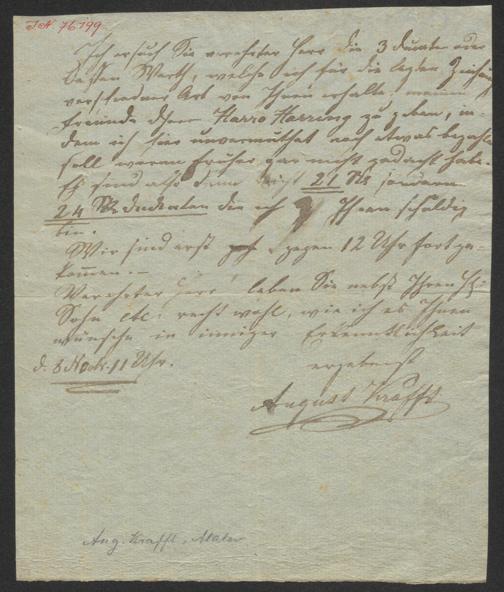 I.N. 76.199
Ich ersuche Sie verehrter Herr die 3 Ducaten oder
dessen Werth, welche ich für die letzten
von Ihnen erhalte, meinem
Freunde dem Harro Harring zu geben, in-
dem ich hier unvermuthet noch etwas bezahlen
soll woran früher gar nicht gedacht habe.
Es sind also dann nicht 21 Stk sondern
24 Stk Dukaten die ich Ihnen schuldig
bin.
Wir sind erst gegen 12 Uhr fortge-
kommen. –
Verehrter Herr leben Sie nebst Ihren H:
Sohn etc: recht wohl, wie ich es Ihnen
wünsche in inniger Erkenntlichkeit
d. 8 Nov. 11 Uhr.
ergebenst
August Krafft
Aug. Krafft, Maler